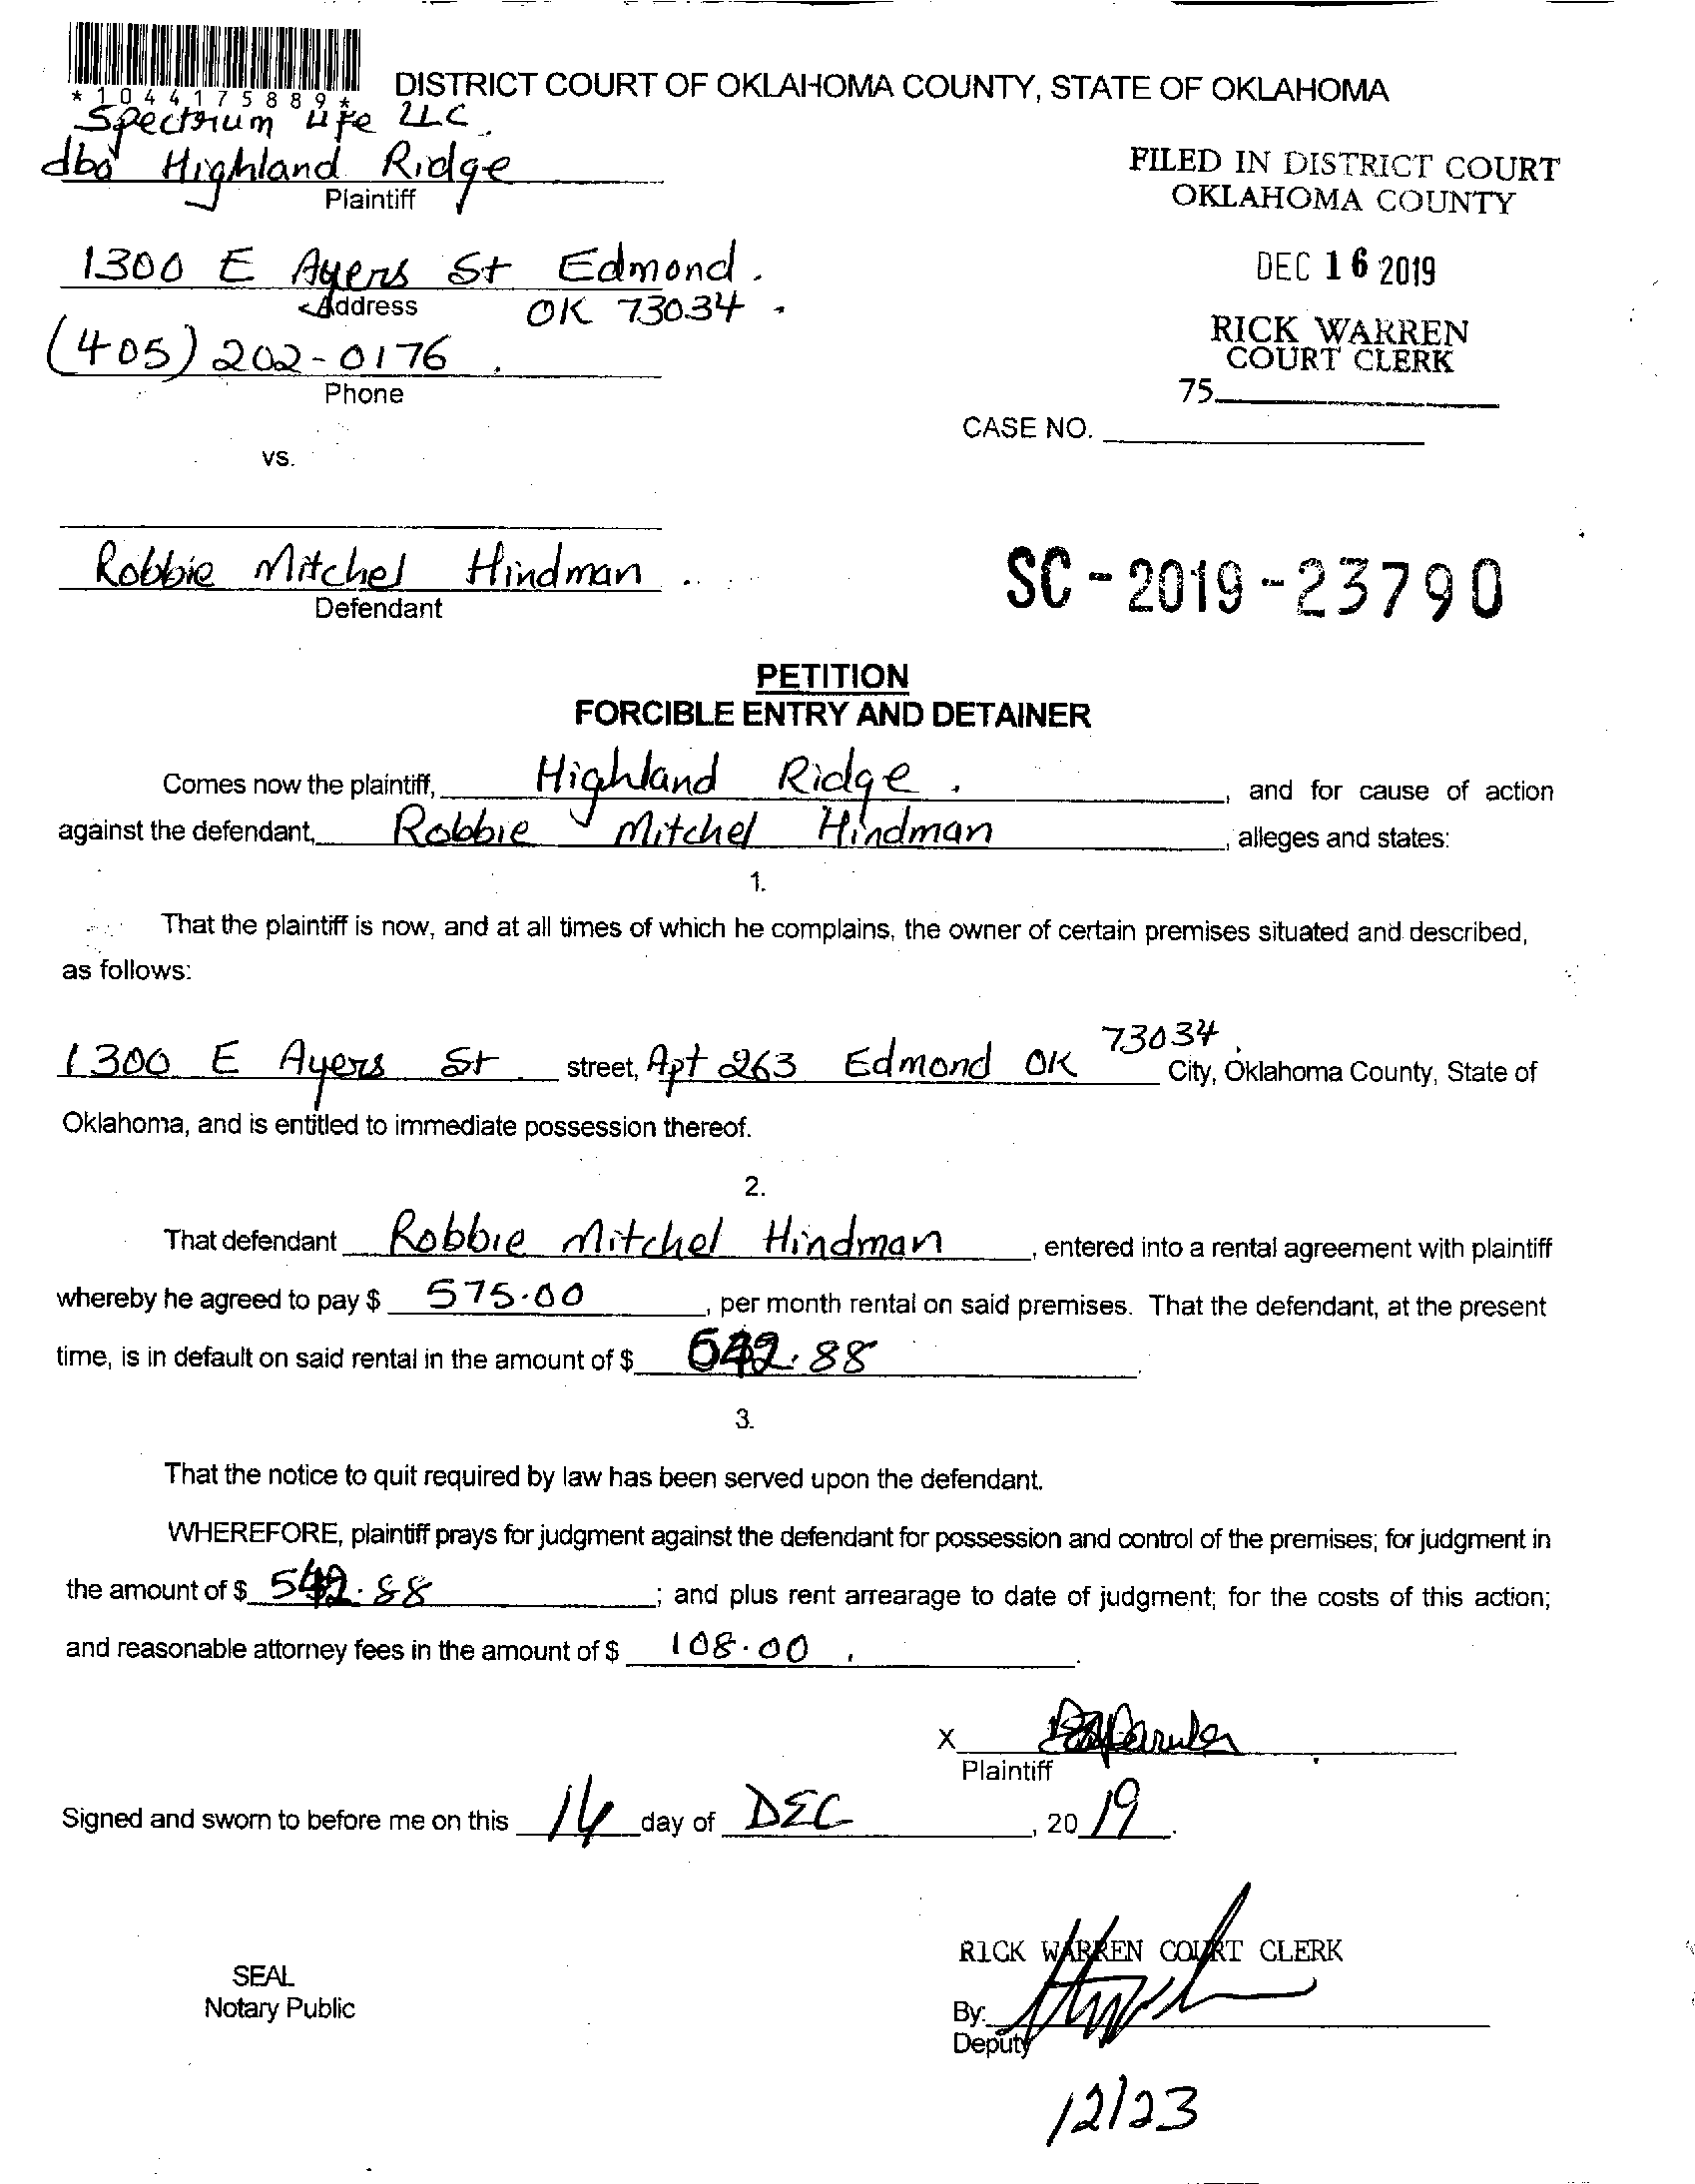 *1044175889*
DISTRICT COURT OF OKLAHOMA COUNTY, STATE OF OKLAHOMA
Spectrum Life LLC
dba Highland Ridge
Plaintiff
FILED IN DISTRICT COURT
OKLAHOMA COUNTY
1300 E Ayers St Edmond.
Address
OK 73034
DEC 16 2019
(405) 202-0176
Phone
RICK WARREN
COURT CLERK
75
CASE NO.
vs.
Robbie Mitchel Hindman
Defendant
SC-2019-23790
PETITION
FORCIBLE ENTRY AND DETAINER
Comes now the plaintiff, Highland Ridge, and for cause of action
against the defendant, Robbie Mitchel Hindman, alleges and states:
1.
That the plaintiff is now, and at all times of which he complains, the owner of certain premises situated and described,
as follows:
73034
1300 E Ayers St street, Apt 263 Edmond OK City, Oklahoma County, State of
Oklahoma, and is entitled to immediate possession thereof.
2.
That defendant Robbie Mitchel Hindman, entered into a rental agreement with plaintiff
whereby he agreed to pay $ 575.00, per month rental on said premises. That the defendant, at the present
time, is in default on said rental in the amount of $
3.
That the notice to quit required by law has been served upon the defendant.
WHEREFORE, plaintiff prays for judgment against the defendant for possession and control of the premises; for judgment in
the amount of $ 542.88; and plus rent arrearage to date of judgment; for the costs of this action;
and reasonable attorney fees in the amount of $ 108.00.
X
Plaintiff
Signed and sworn to before me on this day of DEC, 2019.
RICK WARREN COURT CLERK
SEAL
Notary Public
By:
Deputy
12/23